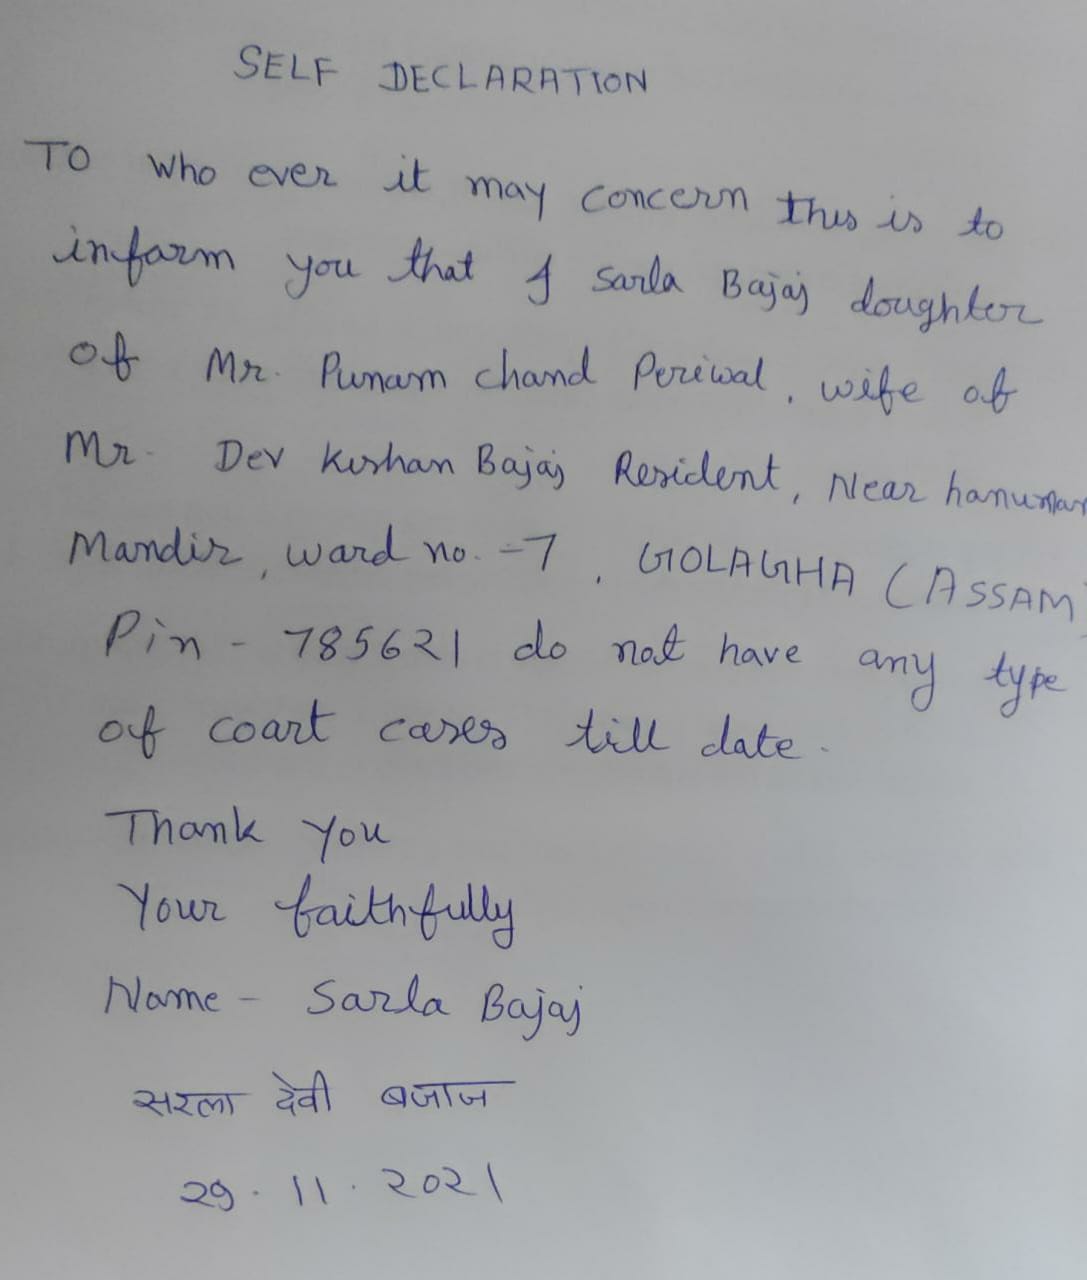 SELF DECLARATION
TO who ever it may concern this is to
infarm you that I Sarla Bajaj doughter
of Mr. Punam chand Periwal, wife of
Mr. Dev Kishan Bajaj Resident, Near hanuman
Mandir, ward no. -7, GOLAGHA (ASSAM)
Pin - 785621 do not have any type
of coart cases till date.
Thank you
Your faithfully
Name - Sarla Bajaj
सरला देवी बजाज
29.11.2021